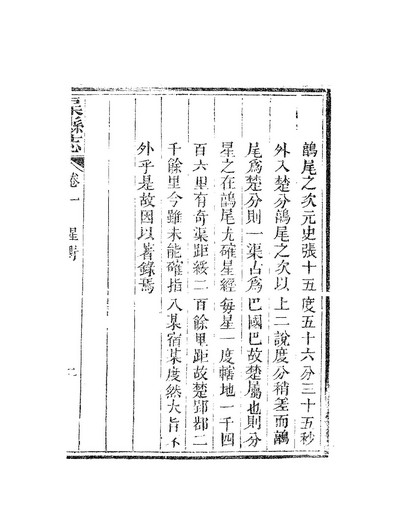 鶉尾之次元史張十五度五十六分三十五秒
外入楚分鶉尾之次以上二說度分稍差而鶉
尾爲楚分則一渠占爲巴國巴故楚屬也則分
星之在鶉尾尤確星經每星一度轄地一千四
百六里有奇渠距綏二百餘里距故楚都二
千餘里今雖未能確指入某宿某度然大旨不
外乎是故因以著錄焉
渠縣志
卷一
星